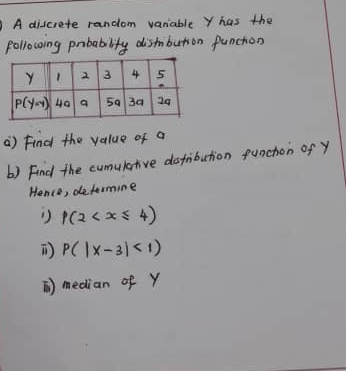 ) A discrete random variable Y has the
following probability distribution function
Y 1 2 3 4 5
P(Y=y) 4a a 5a 3a 2a
a) Find the value of a
b) Find the cumulative distribution function of Y
Hence, determine
i) P(2 < x ≤ 4)
ii) P( |x-3| < 1)
iii) median of Y